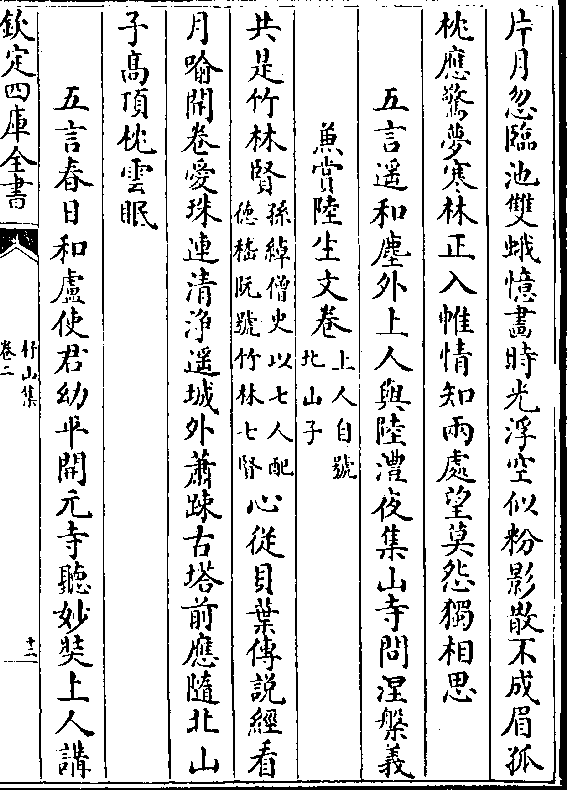 片月忽臨池雙蛾憶畫時光浮空似粉影散不成眉孤
枕應驚夢寒林正入帷情知兩處望莫怨獨相思
五言遥和塵外上人與陸澧夜集山寺問涅槃義
兼賞陸生文卷上人自號北山子
共是竹林賢孫綽僧史以七人配德嵇阮號竹林七賢心從貝葉傳説經看
月喻開卷愛珠連清淨遥城外蕭疎古塔前應隨北山
子高頂枕雲眠
五言春日和盧使君幼平開元寺聽妙奘上人講
欽定四庫全書
杼山集
卷二
十二